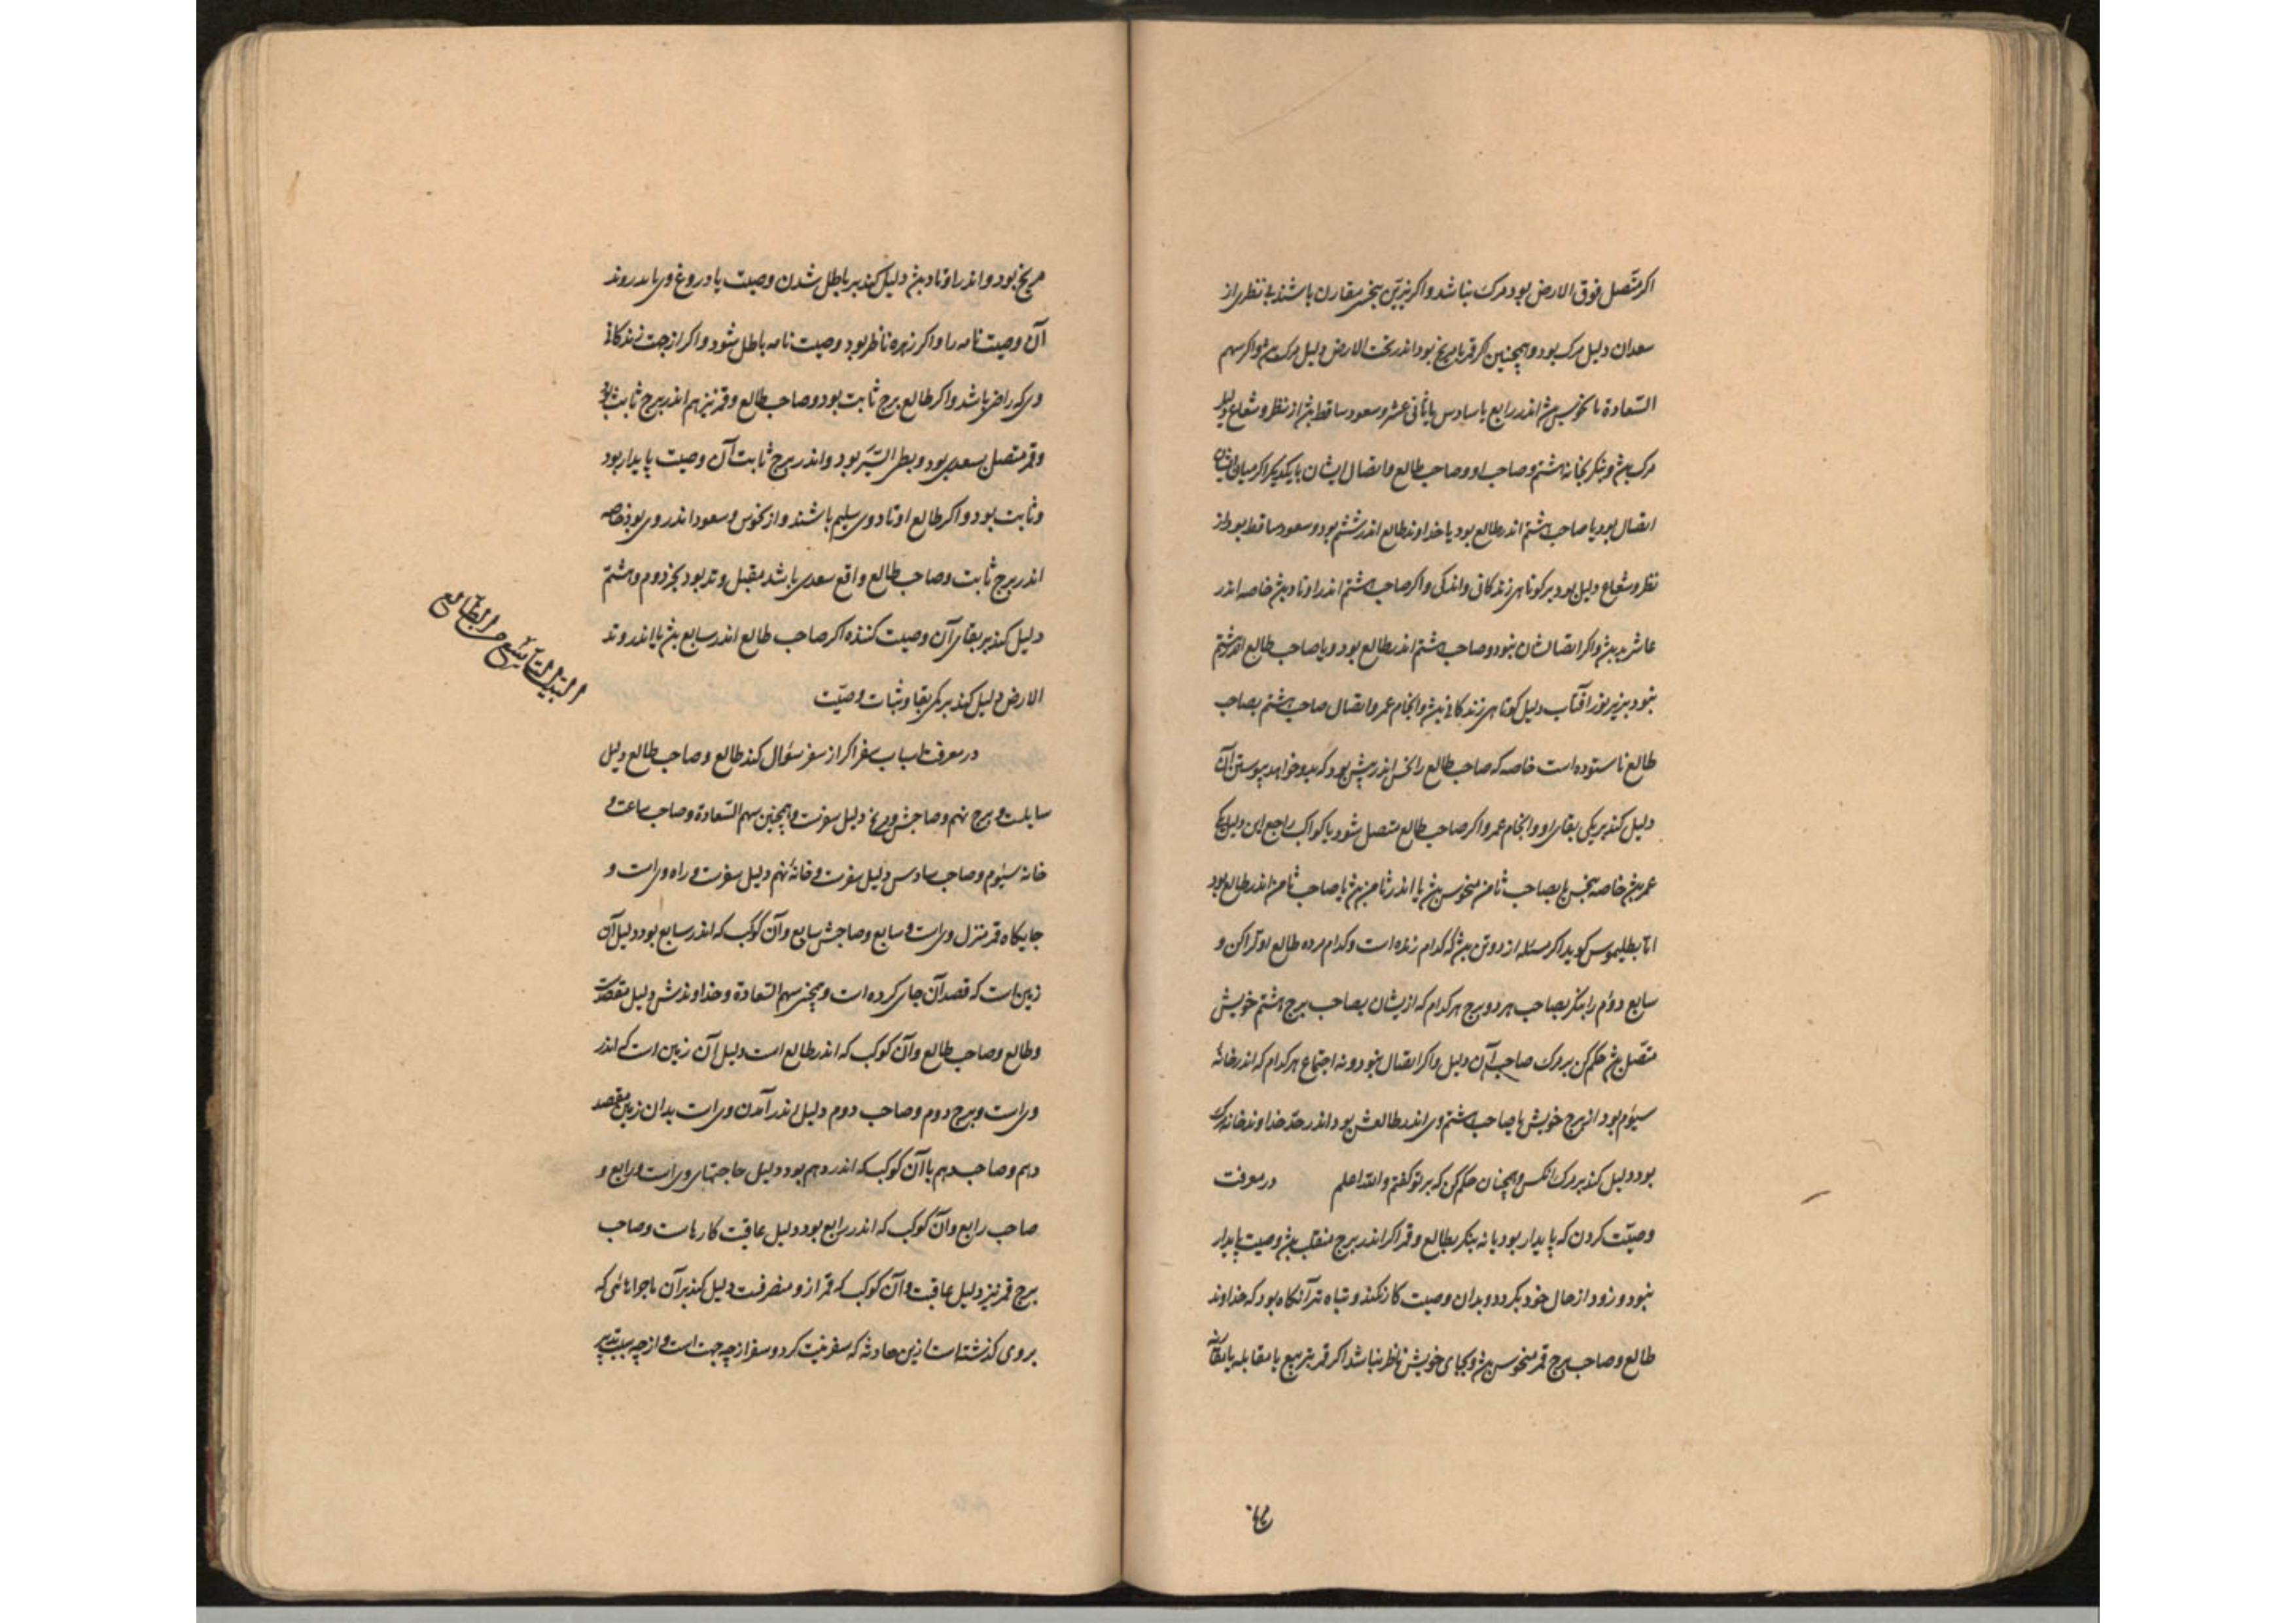 اکر متّصل فوق الارض بود مرک نباشد و اکر نیرّین بنحس مقارن باشند بی نظری از
سعدان دلیل مرک بود و همچنین اکر قمر با مریخ بود اندر تحت الارض دلیل مرک بود و اکر سهم
السّعادة با نحوس بود اندر رابع یا سادس یا ثانی عشر و سعود ساقط بود از نظر و شعاع دلیل
مرک بود و بنکر بخانه هشتم و صاحب او و صاحب طالع و اتصال ایشان با یکدیکر اکر میان ایشان
اتصال بود یا صاحب هشتم اندر طالع بود یا خداوند طالع اندر ششم بود و سعود ساقط بود از
نظر و شعاع دلیل بود بر کوتاهی زندکانی و اندکی و اکر صاحب هشتم اندر اوتاد بود خاصه اندر
عاشر بد بود و اکر اتصالشان نبود و صاحب هشتم اندر طالع بود و یا صاحب طالع اندر هشتم
نبود بزیر نور آفتاب دلیل کوتاهی زندکانی بود و انجام عمر و اتصال صاحب هشتم بصاحب
طالع ناستوده است خاصه که صاحب طالع را نحس اندر پیش بود که بدو خواهد پیوستن آن
دلیل کند بر یکی بقای او و انجام عمر و اکر صاحب طالع متصل شود با کواکب راجع این دلیل
عمر بود خاصه بنحس یا بصاحب ثامن منحوس بود یا اندر ثامن بود یا صاحب ثامن اندر طالع بود
امّا بطلیموس کوید اکر مسئله از دو تن بود که کدام زنده است و کدام مرده طالع اول را کن و
سابع دوّم را بنکر بصاحب هر دو برج هر کدام که ازیشان بصاحب برج هشتم خویش
متّصل بود حکم کن بر مرک صاحب آن دلیل و اکر اتصال نبود و نه اجتماع هر کدام که اندر خانهٔ
سیوم بود از برج خویش یا صاحب هشتم وی اندر طالعش بود اندر حدّ خداوند خانه مرک
بود دلیل کند بر مرک آنکس و همچنان حکم کن که بر تو کفتم و الله اعلم در معرفت
وصیّت کردن که پایدار بود یا نه بنکر بطالع و قمر اکر اندر برج منقلب بود وصیت پایدار
نبود و زود از حال خود بکردد و بدان وصیت کار نکند و تباه تر آنکاه بود که خداوند
طالع و صاحب برج قمر منحوس بود و بجای خویش ناظر نباشد اکر قمر بتربیع یا مقابله یا مقارنه
مریخ بود و اندر اوتاد بود دلیل کند بر باطل شدن وصیت یا دروغ وی یا بدروند
آن وصیت نامه را و اکر زهره ناظر بود وصیت نامه باطل شود و اکر از جهت زندکانی
وی که راض باشد و اکر طالع برج ثابت بود و صاحب طالع و قمر نیز هم اندر برج ثابت بود
و قمر متصل بسعدی بود و بطی السّیر بود و اندر برج ثابت آن وصیت پایدار بود
و ثابت بود و اکر طالع اوتاد وی سلیم باشند و از نحوس و سعود اندر وی بود خاصه
اندر برج ثابت و صاحب طالع واقع سعدی باشد مقبل و تد بود بجز دوم و هشتم
دلیل کند بر بقای آن وصیت کننده اکر صاحب طالع اندر سابع بود یا اندر وتد
الارض دلیل کند بر کمی بقا و ثبات وصیّت
البیت التاسع من الطّالع
در معرفت اسباب سفر اکر از سفر سؤال کند طالع و صاحب طالع دلیل
سایلست و برج نهم و صاحبش و مریخ دلیل سفرست و همچنین سهم السّعادة و صاحب ساعت و
خانهٔ سیوم و صاحب سادس دلیل سفرست و خانهٔ نهم دلیل سفرست و راه وی است و
جایکاه قمر منزل وی است و سابع و صاحبش سابع و آن کوکب که اندر سابع بود دلیل آن
زمین است که قصد آن جای کرده است و همچنین سهم السّعادة و خداوندش دلیل مقصدست
و طالع و صاحب طالع و آن کوکب که اندر طالع است دلیل آن زمین است که اندر
وی است و برج دوم و صاحب دوم دلیل اندر آمدن وی است بدان زمین مقصد
دهم و صاحب دهم با آن کوکب که اندر دهم بود دلیل حاجتهای وی است و رابع و
صاحب رابع و آن کوکب که اندر رابع بود دلیل عاقبت کارهاست و صاحب
برج قمر نیز دلیل عاقبت و آن کوکب که قمر ازو منصرفست دلیل کند بر آن ماجراهائی که
بر وی کذشته است ازین حادثه که سفر نیت کرد و سفر از چه جهت است و از چه سبب تدبیر